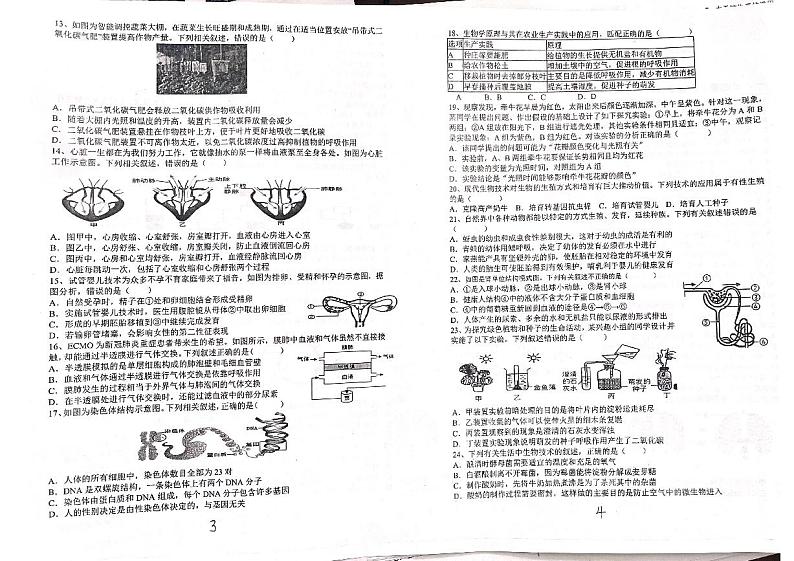 13、如图为智能调控蔬菜大棚，在蔬菜生长旺盛期和成熟期，通过在适当位置安放“吊带式二
氧化碳气肥”装置提高作物产量。下列相关叙述，错误的是（ ）
A．吊带式二氧化碳气肥会释放二氧化碳供作物吸收利用
B．随着大棚内光照和温度的升高，装置中二氧化碳释放量会减少
C．二氧化碳气肥装置悬挂在作物枝叶上方，便于叶片更好地吸收二氧化碳
D．二氧化碳气肥装置不可离作物太近，以免二氧化碳浓度过高抑制植物的呼吸作用
14、心脏一生都在为我们努力工作，它就像抽水的泵一样将血液泵至全身各处，如图为心脏
工作示意图。下列相关叙述，错误的是（ ）
肺动脉 主动脉 上下腔静脉 肺静脉
甲 乙 丙
A．图甲中，心房收缩、心室舒张，房室瓣打开，血液由心房进入心室
B．图乙中，心房舒张、心室收缩，房室瓣关闭，防止血液倒流回心房
C．图丙中，心房和心室均舒张，房室瓣打开，血液经静脉流回心房
D．心脏每跳动一次，包括了心室收缩和心房舒张两个过程
15、试管婴儿技术为众多不孕不育家庭带来了福音。如图为排卵、受精和怀孕的示意图，据
图分析，错误的是（ ）
A．自然受孕时，精子在①处和卵细胞结合形成受精卵
B．实施试管婴儿技术时，医生用腹腔镜从母体②中取出卵细胞
C．形成的早期胚胎移植到③中继续完成发育
D．若输卵管堵塞，会影响女性的第二性征表现
16、ECMO 为新冠肺炎重症患者带来生的希望。如图所示，膜肺中血液和气体虽然不直接接
触，却能通过半透膜进行气体交换。下列叙述正确的是（ ）
A．半透膜模拟的是单层细胞构成的肺泡壁和毛细血管壁
B．血液和气体通过半透膜进行气体交换是依靠呼吸作用
C．膜肺发生的过程相当于外界气体与肺泡间的气体交换
D．在半透膜处进行气体交换时，还能过滤血液中的部分尿素
膜肺
气体 气体
半透膜
血液
17、如图为染色体结构示意图。下列相关叙述，正确的是（ ）
染色体 DNA 基因
蛋白质
A．人体的所有细胞中，染色体数目全部为 23 对
B．DNA 是双螺旋结构，一条染色体上有两个 DNA 分子
C．染色体由蛋白质和 DNA 组成，每个 DNA 分子包含许多基因
D．人的性别决定是由性染色体决定的，与基因无关
3
18、生物学原理与其在农业生产实践中的应用，匹配正确的是（ ）
选项 生产实践 原理
A 种庄稼要施肥 给植物的生长提供无机盐和有机物
B 给农作物松土 增加土壤中的空气，促进根的呼吸作用
C 移栽植物时去掉部分枝叶 主要目的是降低呼吸作用，减少有机物消耗
D 早春播种后覆盖地膜 提高土壤湿度，促进种子的萌发
A．A B．B C．C D．D
19、观察发现，牵牛花早晨为红色，太阳出来后颜色逐渐加深，中午呈紫色。针对这一现象，
某同学在提出问题、作出假设的基础上设计了如下探究实验：①早上，将牵牛花分为 A 和 B
两组；②A 组放在阳光下，B 组进行遮光处理，其他实验条件相同且适宜；③中午，观察记
录实验现象：A 组为紫色，B 组为红色。对该实验的分析正确的是（ ）
A．该同学提出的问题可能为“花瓣颜色变化与光照有关”
B．实验前，A、B 两组牵牛花要保证长势相同且均为红花
C．该实验的变量为光照时间，对照组为 A 组
D．实验结论是“光照时间能够影响牵牛花花瓣的颜色”
20、现代生物技术对生物的生殖方式和培育有巨大推动价值。下列技术的应用属于有性生殖
的是（ ）
A．克隆高产奶牛 B．培育转基因抗虫羊 C．培育试管婴儿 D．培育人工种子
21、自然界中各种动物都能以特定的方式生殖、发育，延续种族。下列有关叙述错误的是
（ ）
A．蚜虫的幼虫和成虫食性差别很大，这对于幼虫的成活是有利的
B．青蛙的幼体用鳃呼吸，决定了幼体的发育必须在水中进行
C．家燕能产具有坚硬外壳的卵，使胚胎在相对稳定的环境中发育
D．人类的胎生可使胚胎得到有效保护，哺乳利于婴儿的健康发育
22、如图是肾单位结构模式图。下列有关叙述不正确的是（ ）
A．①是入球小动脉，③是出球小动脉，②是肾小球
B．健康人结构⑤中的液体不含大分子蛋白质和血细胞
C．⑥中的葡萄糖重新回到血液的途径是⑥→⑤→④
D．人体产生的尿素、多余的水和无机盐只能以尿液的形式排出
23、为探究绿色植物和种子的生命活动，某兴趣小组的同学设计并
实施了以下实验。下列叙述错误的是（ ）
甲 乙 金鱼藻 澄清的石灰水 丙 萌发的种子 丁
A．甲装置实验前暗处理的目的是将叶片内的淀粉运走耗尽
B．乙装置收集的气体可以使带火星的细木条复燃
C．丙装置观察到的现象是澄清的石灰水变浑浊
D．丁装置实验现象说明萌发的种子呼吸作用产生了二氧化碳
24、下列有关生活中生物技术的叙述，正确的是（ ）
A．酿酒时酵母菌需要适宜的温度和充足的氧气
B．白酒酿制离不开霉菌，因为霉菌能将淀粉分解成麦芽糖
C．制作酸奶时，先将牛奶加热煮沸是为了杀死其中的杂菌
D．酸奶的制作过程需要密封，这样做的主要目的是防止空气中的微生物进入
4